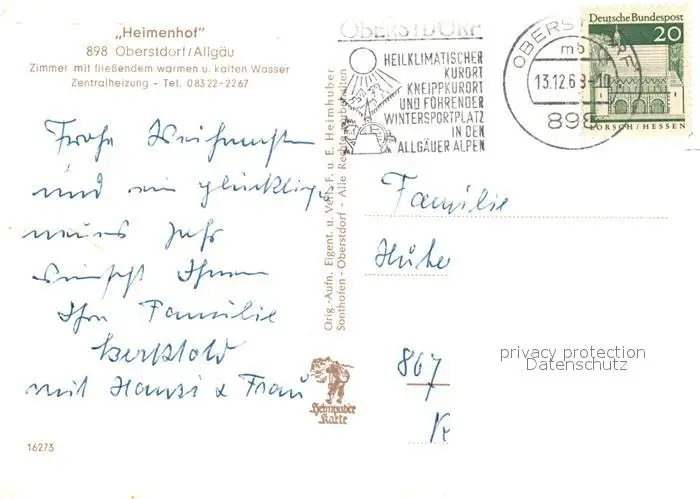 „Heimenhof"
898 Oberstdorf/Allgäu
Zimmer mit fließendem warmen u. kalten Wasser
Zentralheizung - Tel. 08322-2267
Frohe Weihnachten
und ein glückliches
neues Jahr
wünscht Ihnen
Ihre Familie
Berktold
mit Hansi & Frau
16273
Orig.-Aufn. Eigent. u. Verl. F. u. E. Heimhuber
Sonthofen-Oberstdorf - Alle Rechte vorbehalten
Heimhuber
Karte
OBERSTDORF
HEILKLIMATISCHER
KURORT
KNEIPPKURORT
UND FÜHRENDER
WINTERSPORTPLATZ
IN DEN
ALLGÄUER ALPEN
OBERSTDORF
mb
13.12.68-10
898
Deutsche Bundespost
20
LORSCH/HESSEN
Familie
867
privacy protection
Datenschutz